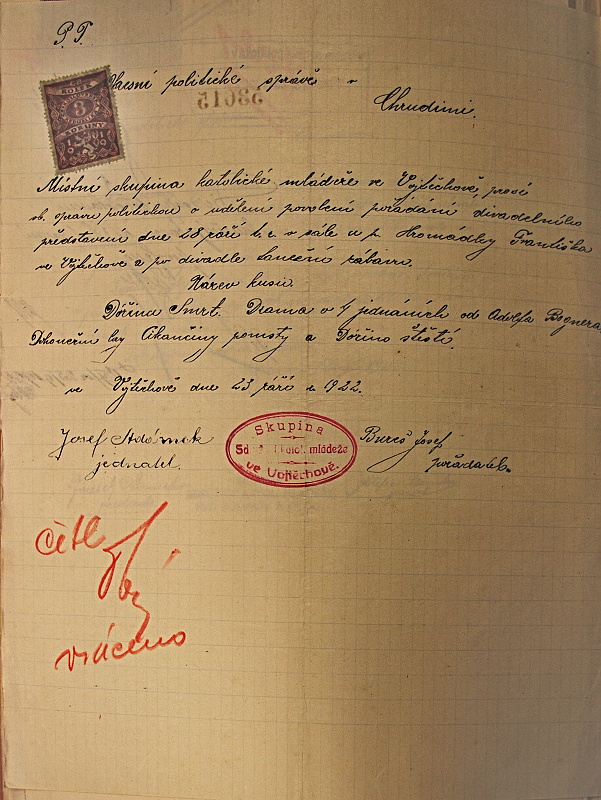 P. T.
Okresní politické správě v
Chrudimi.
KOLEK
3
KORUNY
Místní skupina katolické mládeže ve Vojtěchově, prosí
sl. správu politickou o udělení povolení pořádání divadelního
představení dne 28 září t. r. v sále u p. Hromádky Františka
ve Vojtěchově a po divadle taneční zábavu.
Název kusu.
Dořina Smrt. Drama o 4 jednáních od Adolfa Bognera
Dokončení hry Cikančiny pomsty a Dořino štěstí.
ve Vojtěchově dne 23 září r. 1922.
Josef Adámek
jednatel.
Skupina
mládeže
ve Vojtěchově.
Bureš Josef
pořadatel.
vráceno